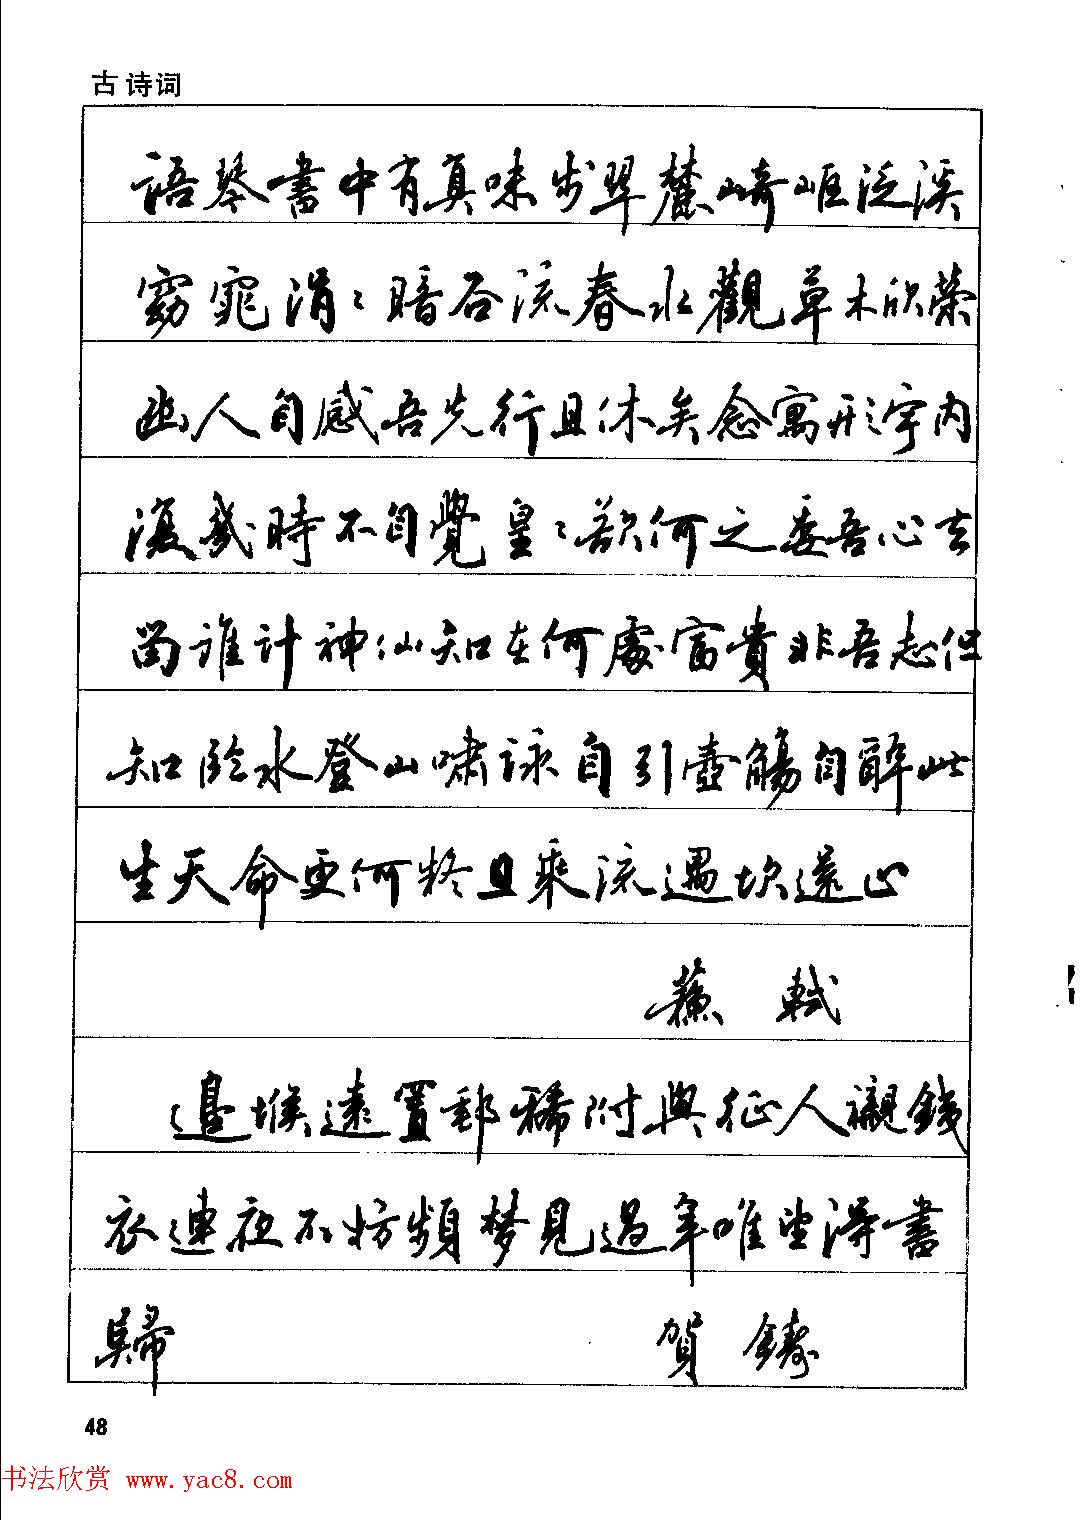 古诗词
語琴書中有真味步翠麓崎岖泛溪
窈窕涓〻暗谷流春水觀草木欣荣
幽人自感吾先行且休矣念寓形宇内
復幾時不自覺皇〻欲何之委吾心去
留谁计神仙知在何處富貴非吾志但
知临水登山啸詠自引壺觴自醉此
生天命更何疑且乘流遇坎還止
蘇軾
邊堠遠置郵稀附與征人襯鐵
衣連夜不妨頻梦見過年唯望得書
歸
賀鑄
48
书法欣赏 www.yac8.com